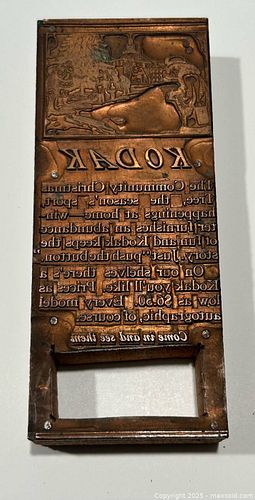 KODAK
The Community Christmas
Tree, the season's sport,
happenings at home—win-
ter furnishes an abundance
of fun and Kodak keeps the
story. Just "push the button."
On our shelves there's a
Kodak you'll like. Prices as
low as $6.50. Every model
autographic, of course.
Come in and see them
Copyright 2025 - maxsold.com